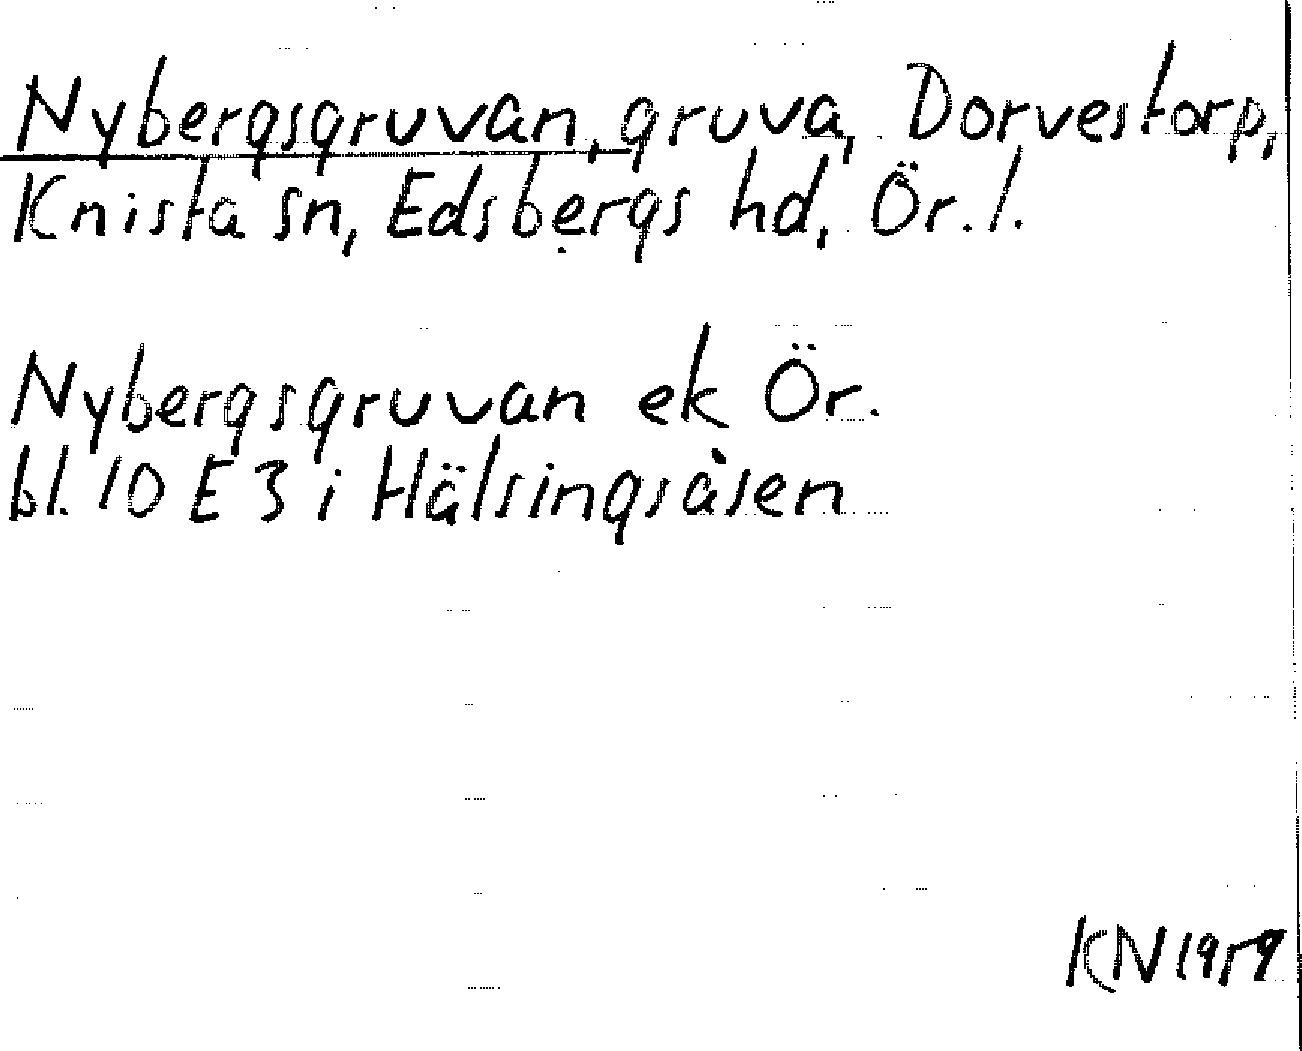 Nybergsgruvan, gruva, Dorvestorp,
Knista sn, Edsbergs hd, Ör. l.
Nybergsgruvan ek Ör.
bl. 10 E 3 i Hälsingsåsen
KN 1959